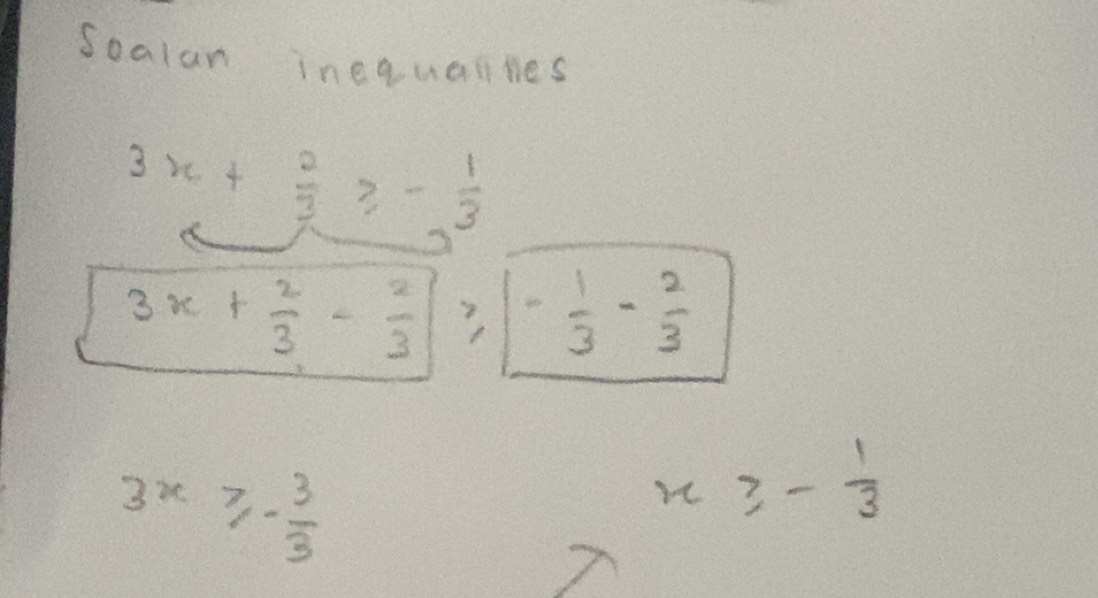 Soalan inequalities
3x + 2/3 ≥ - 1/3
3x + 2/3 - 2/3 ≥ - 1/3 - 2/3
3x ≥ - 3/3
x ≥ - 1/3